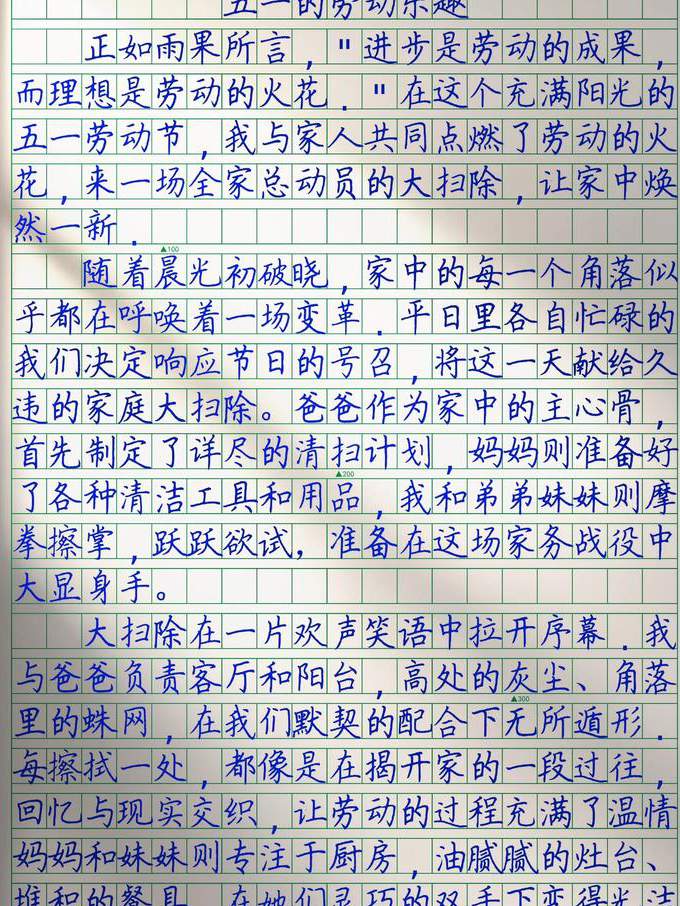 五一的劳动乐趣
正如雨果所言，"进步是劳动的成果，
而理想是劳动的火花．"在这个充满阳光的
五一劳动节，我与家人共同点燃了劳动的火
花，来一场全家总动员的大扫除，让家中焕
然一新．
▲100
随着晨光初破晓，家中的每一个角落似
乎都在呼唤着一场变革．平日里各自忙碌的
我们决定响应节日的号召，将这一天献给久
违的家庭大扫除。爸爸作为家中的主心骨，
首先制定了详尽的清扫计划，妈妈则准备好
▲200
了各种清洁工具和用品，我和弟弟妹妹则摩
拳擦掌，跃跃欲试，准备在这场家务战役中
大显身手。
大扫除在一片欢声笑语中拉开序幕．我
与爸爸负责客厅和阳台，高处的灰尘、角落
▲300
里的蛛网，在我们默契的配合下无所遁形．
每擦拭一处，都像是在揭开家的一段过往，
回忆与现实交织，让劳动的过程充满了温情
妈妈和妹妹则专注于厨房，油腻腻的灶台、
堆积的餐具，在她们灵巧的双手下变得光洁